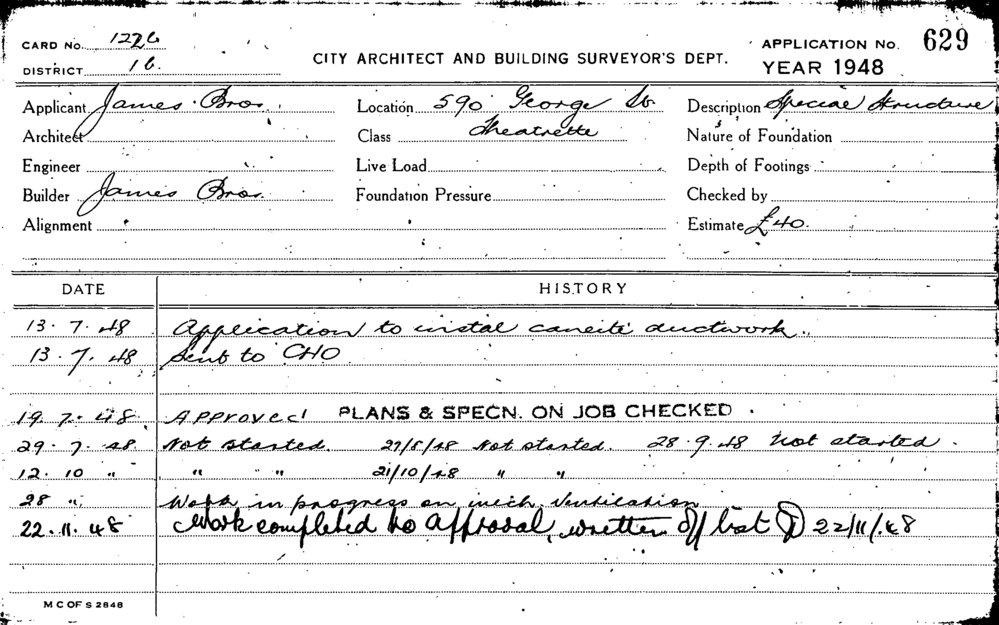 CARD No. 1226
DISTRICT 16.
CITY ARCHITECT AND BUILDING SURVEYOR'S DEPT.
APPLICATION No. 629
YEAR 1948
Applicant James Bros. Location 590 George St Description Special Structure
Architect Class Theatrette Nature of Foundation
Engineer Live Load Depth of Footings
Builder James Bros. Foundation Pressure Checked by
Alignment Estimate £40.
DATE HISTORY
13.7.48 Application to instal caneite ductwork.
13.7.48 Sent to CHO
19.7.48 Approved PLANS & SPECN. ON JOB CHECKED
29.7.48 Not started. 27/8/48 Not started. 28.9.48 Not started.
12.10 " " " 21/10/48 " "
28 " Work in progress on mech. ventilation
22.11.48 Work completed to approval, written off 22/11/48
M C OF S 2848